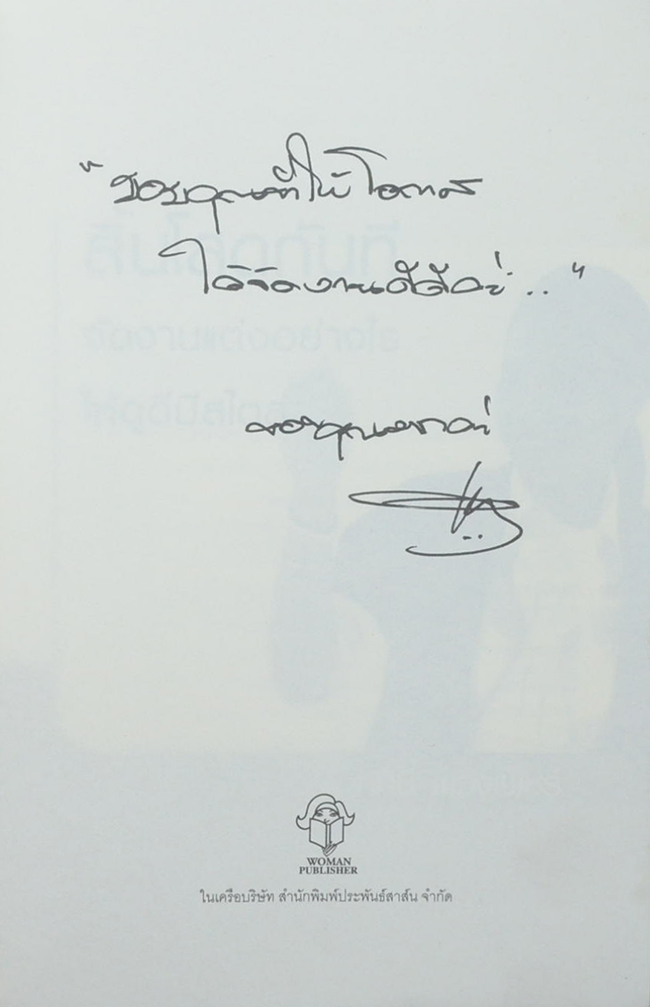 "ขอบคุณที่ให้โอกาส
ได้จัดงานดีดีค่ะ.."
ขอบคุณมากค่ะ
WOMAN
PUBLISHER
ในเครือบริษัท สำนักพิมพ์ประพันธ์สาส์น จำกัด